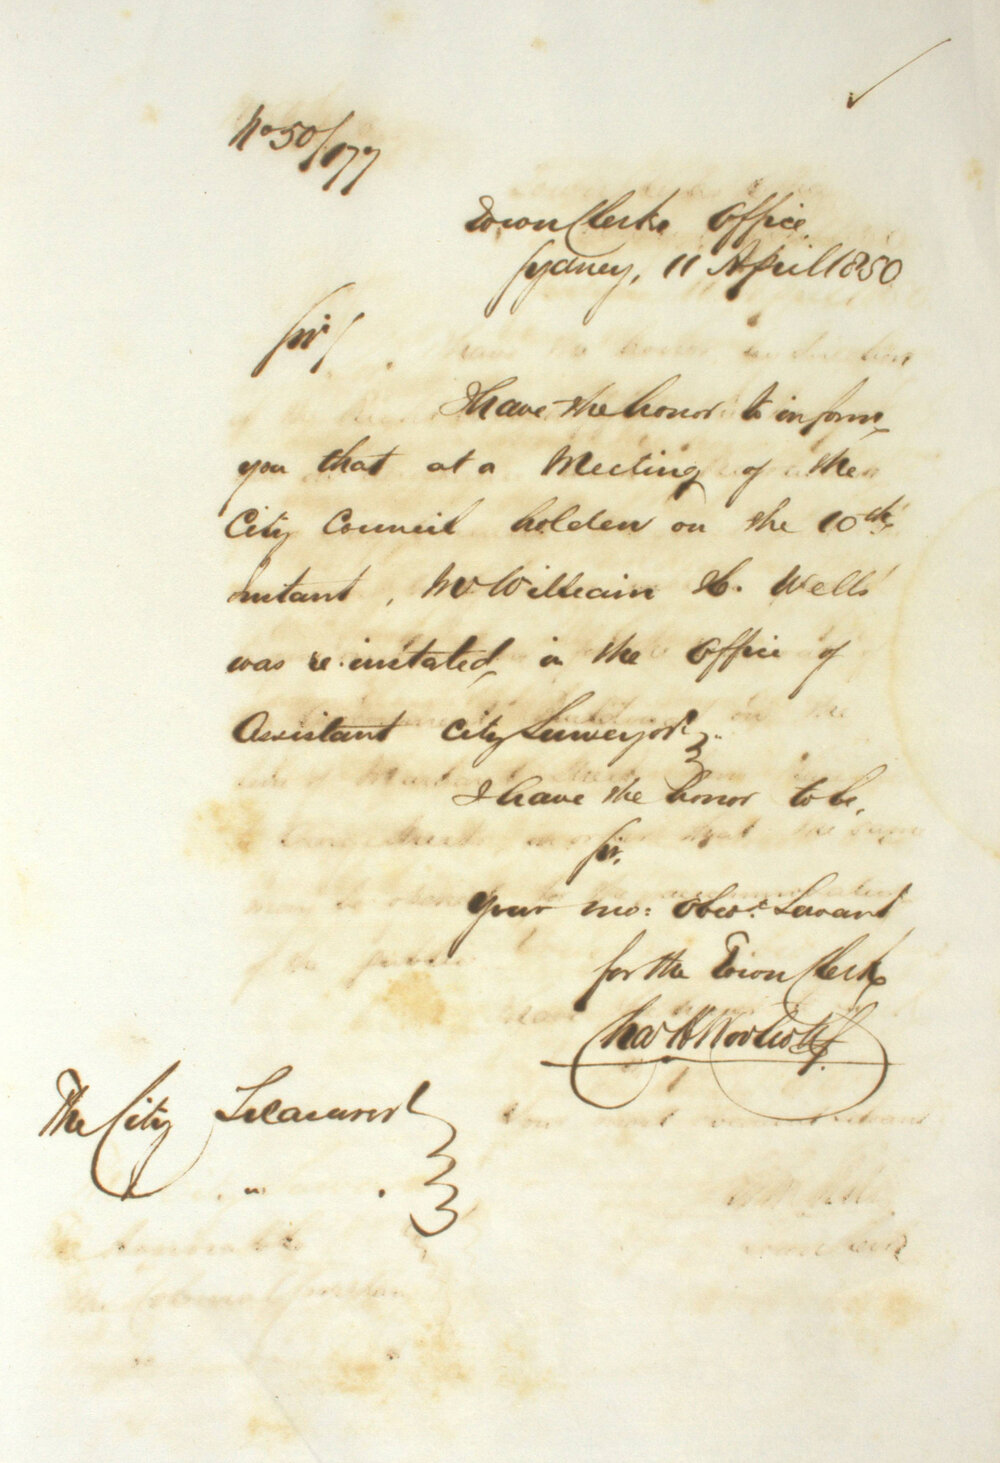 No 50/177
Town Clerks Office
Sydney, 11 April 1850
Sir/
I have the honor to inform
you that at a Meeting of the
City Council holden on the 10th
instant, Mr William H. Wells
was re-instated, in the Office of
Assistant City Surveyor.
I have the honor to be,
Sir,
Your mo: obedt. Servant
for the Town Clerk
Chas H Woolcott
The City Treasurer